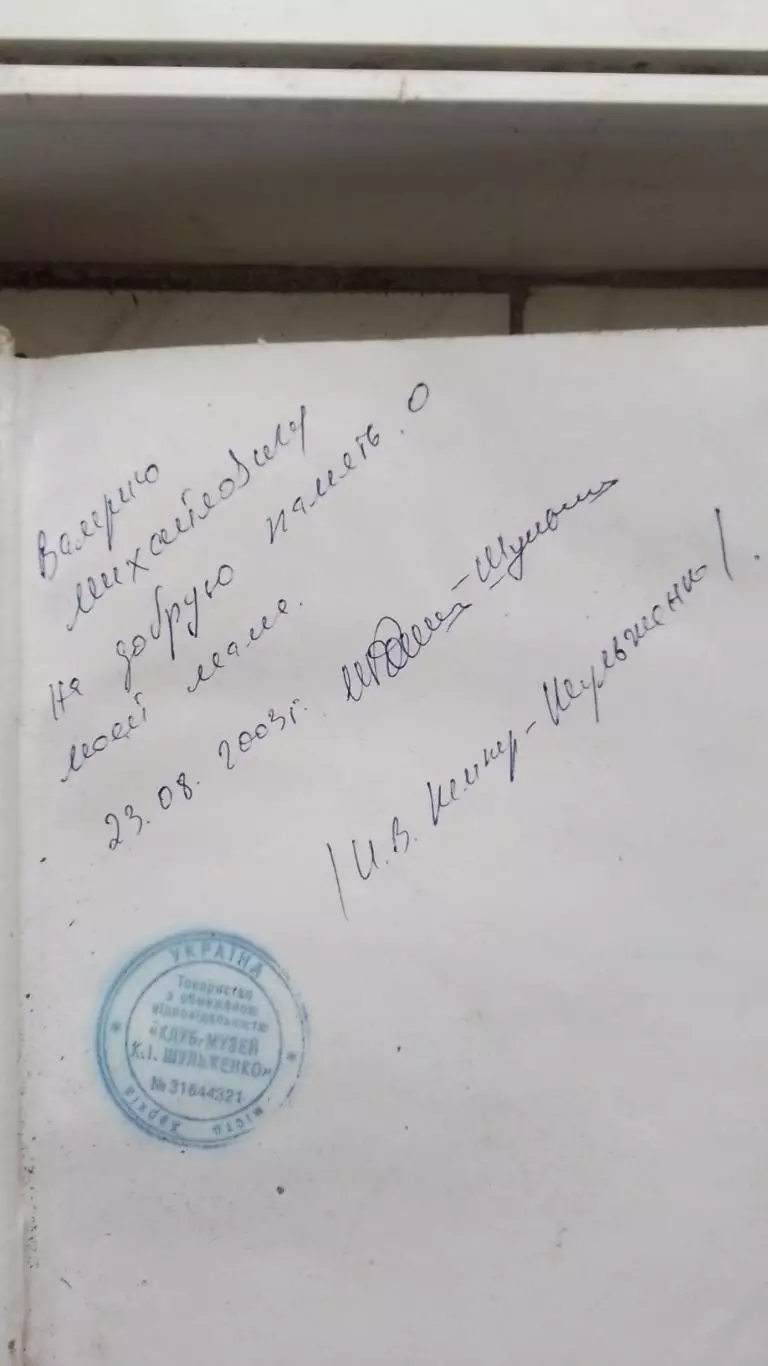 Валерию
Михайловичу
На добрую память о
моей маме.
23.08.2003г.
/И.В. Кемпер-Шульженко/.
УКРАЇНА
Товариство
з обмеженою
відповідальністю
«КЛУБ-МУЗЕЙ
К.І. ШУЛЬЖЕНКО»
№ 31644321
місто Харків